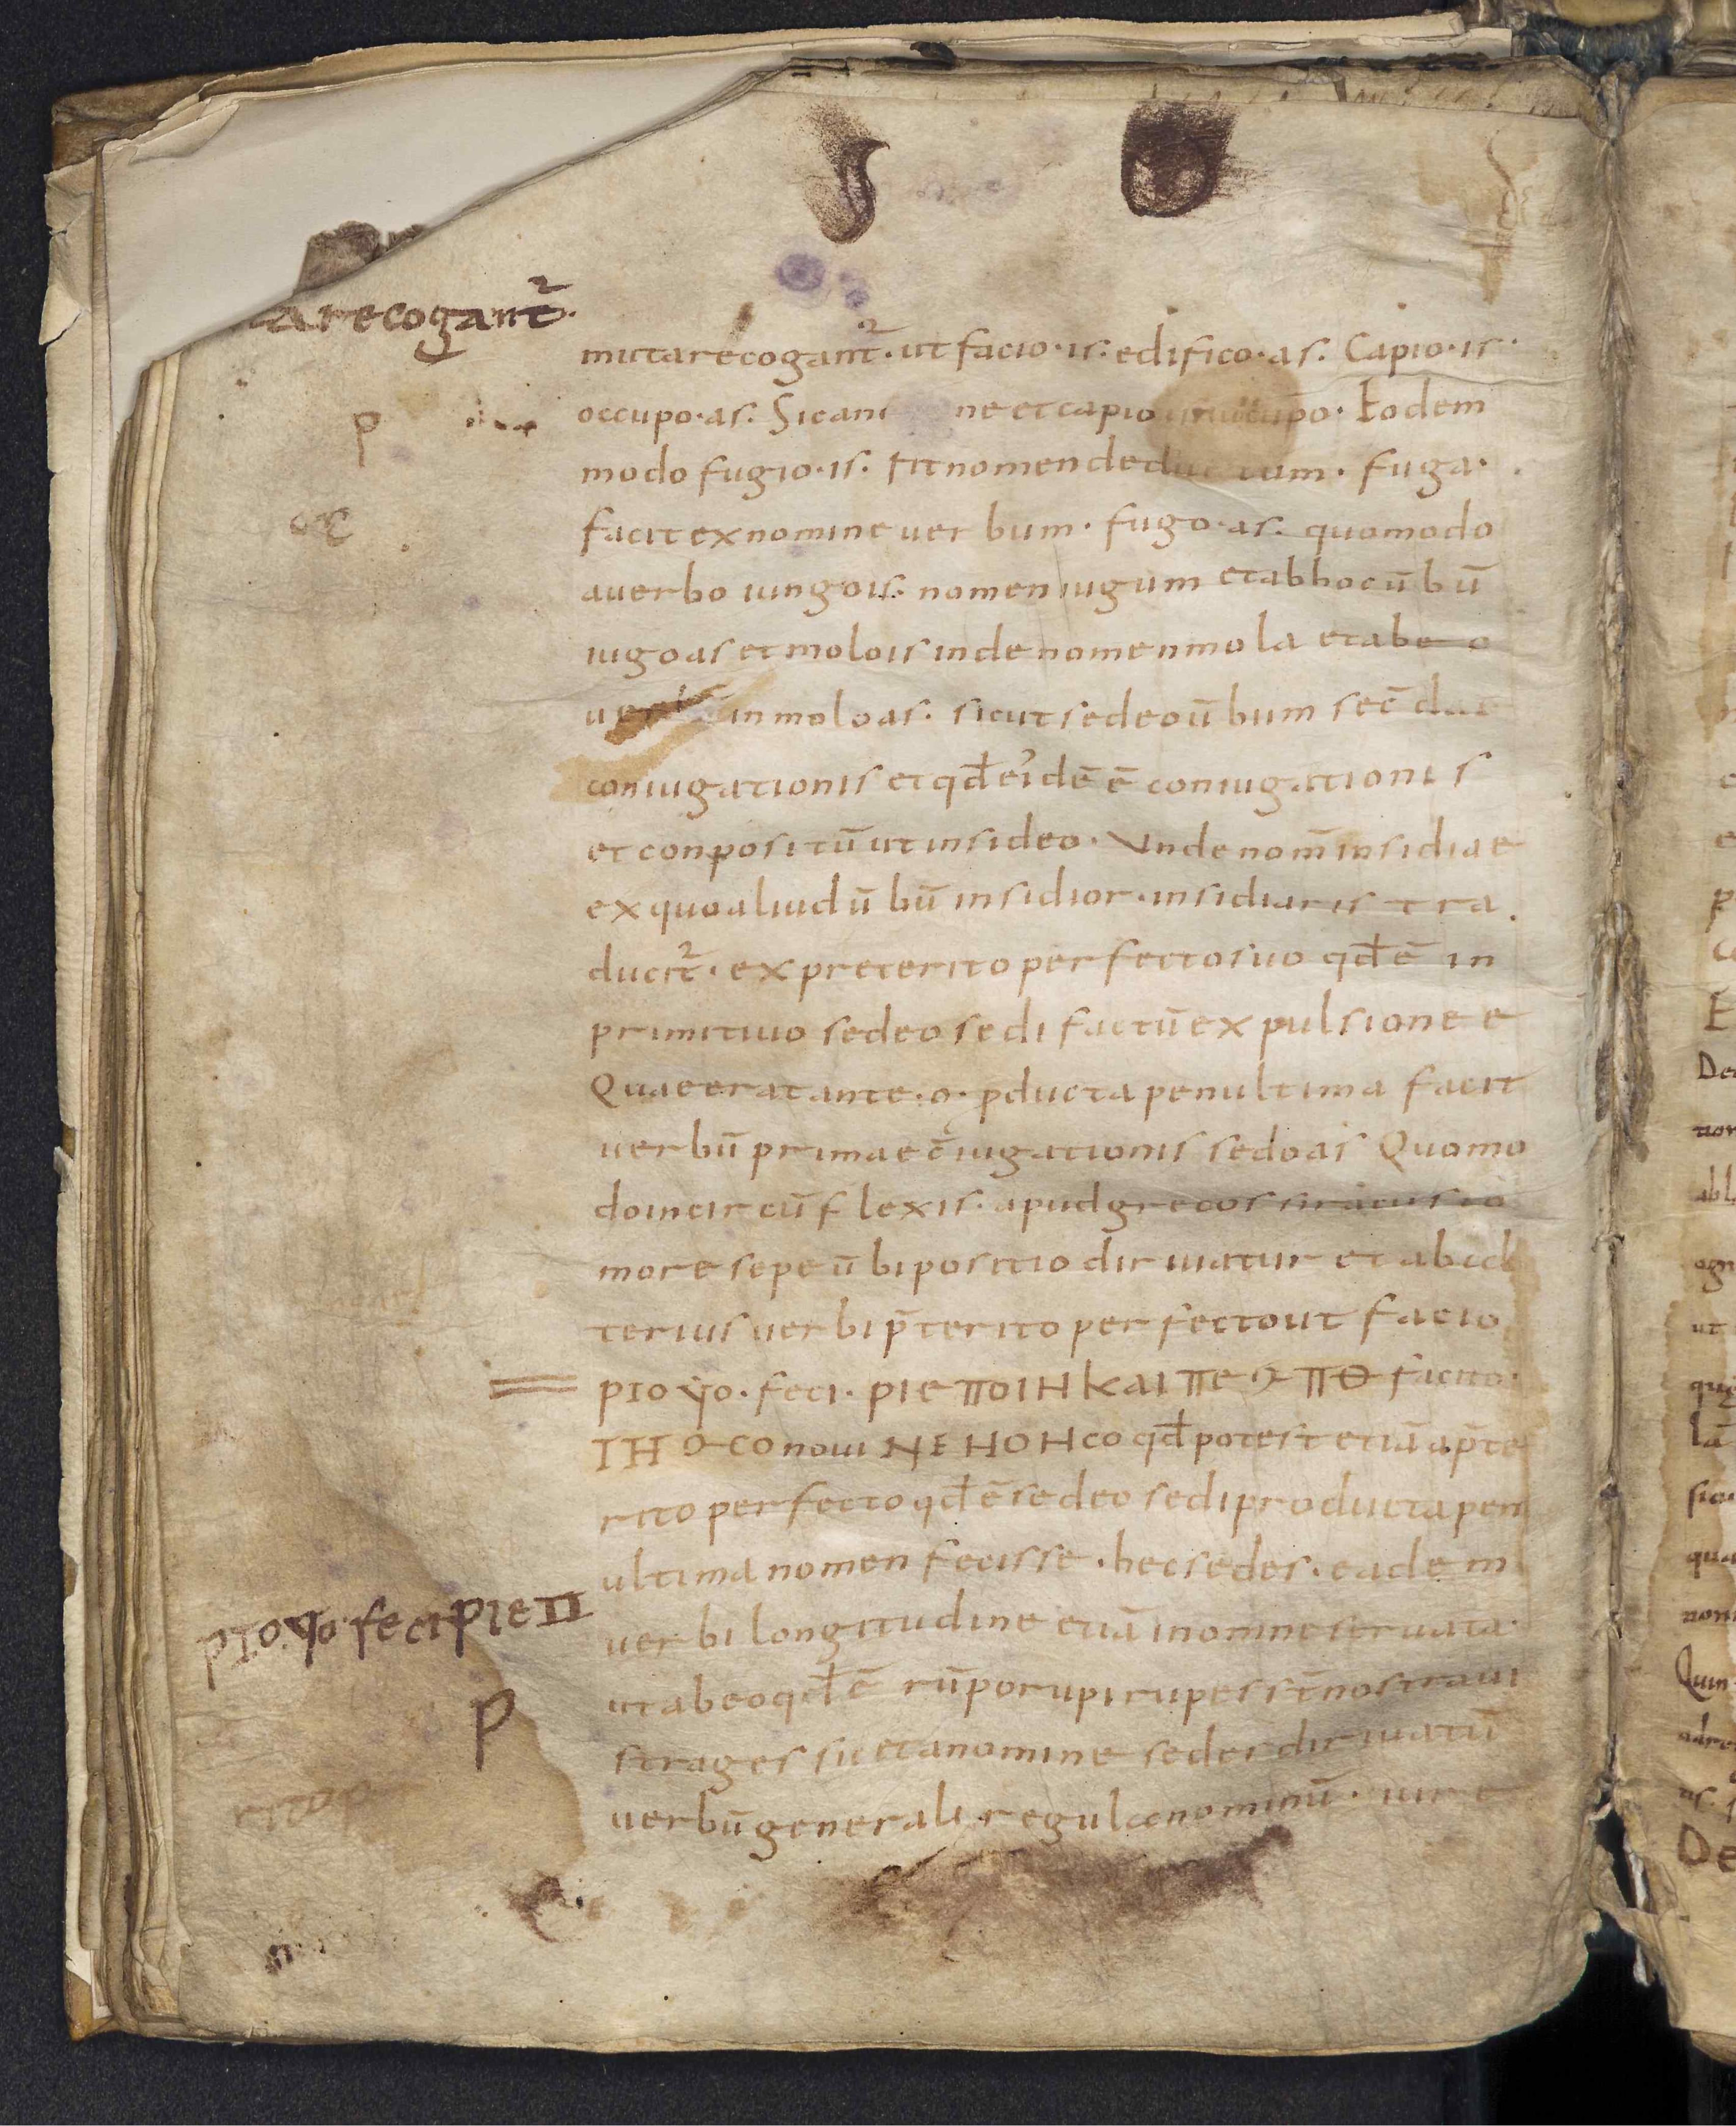 arecogant̄
mutarecogant̄· ut facio·is· edifico·as· Capio·is·
occupo·as· Sic ne et capio Eodem
modo fugio·is· fit nomen fuga·
facit ex nomine uer bum· fugo·as· quomodo
auerbo iungois· nomen iugum et ab hoc ū bū
iugo as et molois inde nomen mola et ab e o
in molo as· sicut sedeo ū bum sec̄
coniugationis et qđ eidē ē coniugationis
et conpositū ut insideo· Unde nom̄ insidiae
ex quo aliud ū bū insidior·insidiaris tra
ducit̄· ex preterito perfecto suo qđ ē in
primitiuo sedeo sedi factū expulsione e
Quae erat ante·o· pducta penultima facit
uerbū primae c̄iugationis sedoas Quomo
do incir cū flexis· apud grecos
more sepe ū bi positio diriuatur et ab
terius uerbi p̄terito perfecto ut facio
pio yo· feci· pie ποιΗ ΚΑΙ πε facito·
ΙΗ co noui NE HOH co qđ potest etiā a p̄te
rito perfecto qđ ē sedeo sedi producta pen
ultima nomen fecisse· hec sedes· eadem
uerbi longitudine etiā inomine seruata·
ut abeo qđ ē rūpo rupi rupes
strages sic et anomine sedes diriuatū
uerbū generali regulae nominū·
pioyo·feci pie π
p